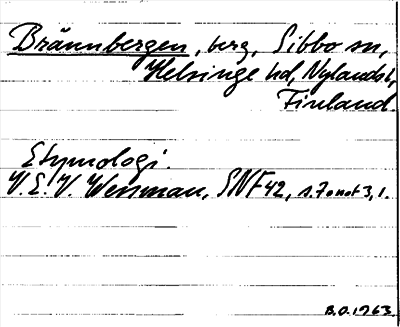 Brännbergen, berg, Sibbo sn,
Helsinge hd, Nylands l,
Finland.
Etymologi.
V. E. V. Wessman, SNF 42, s. 7 o not 3, 1.
B.O. 1963.